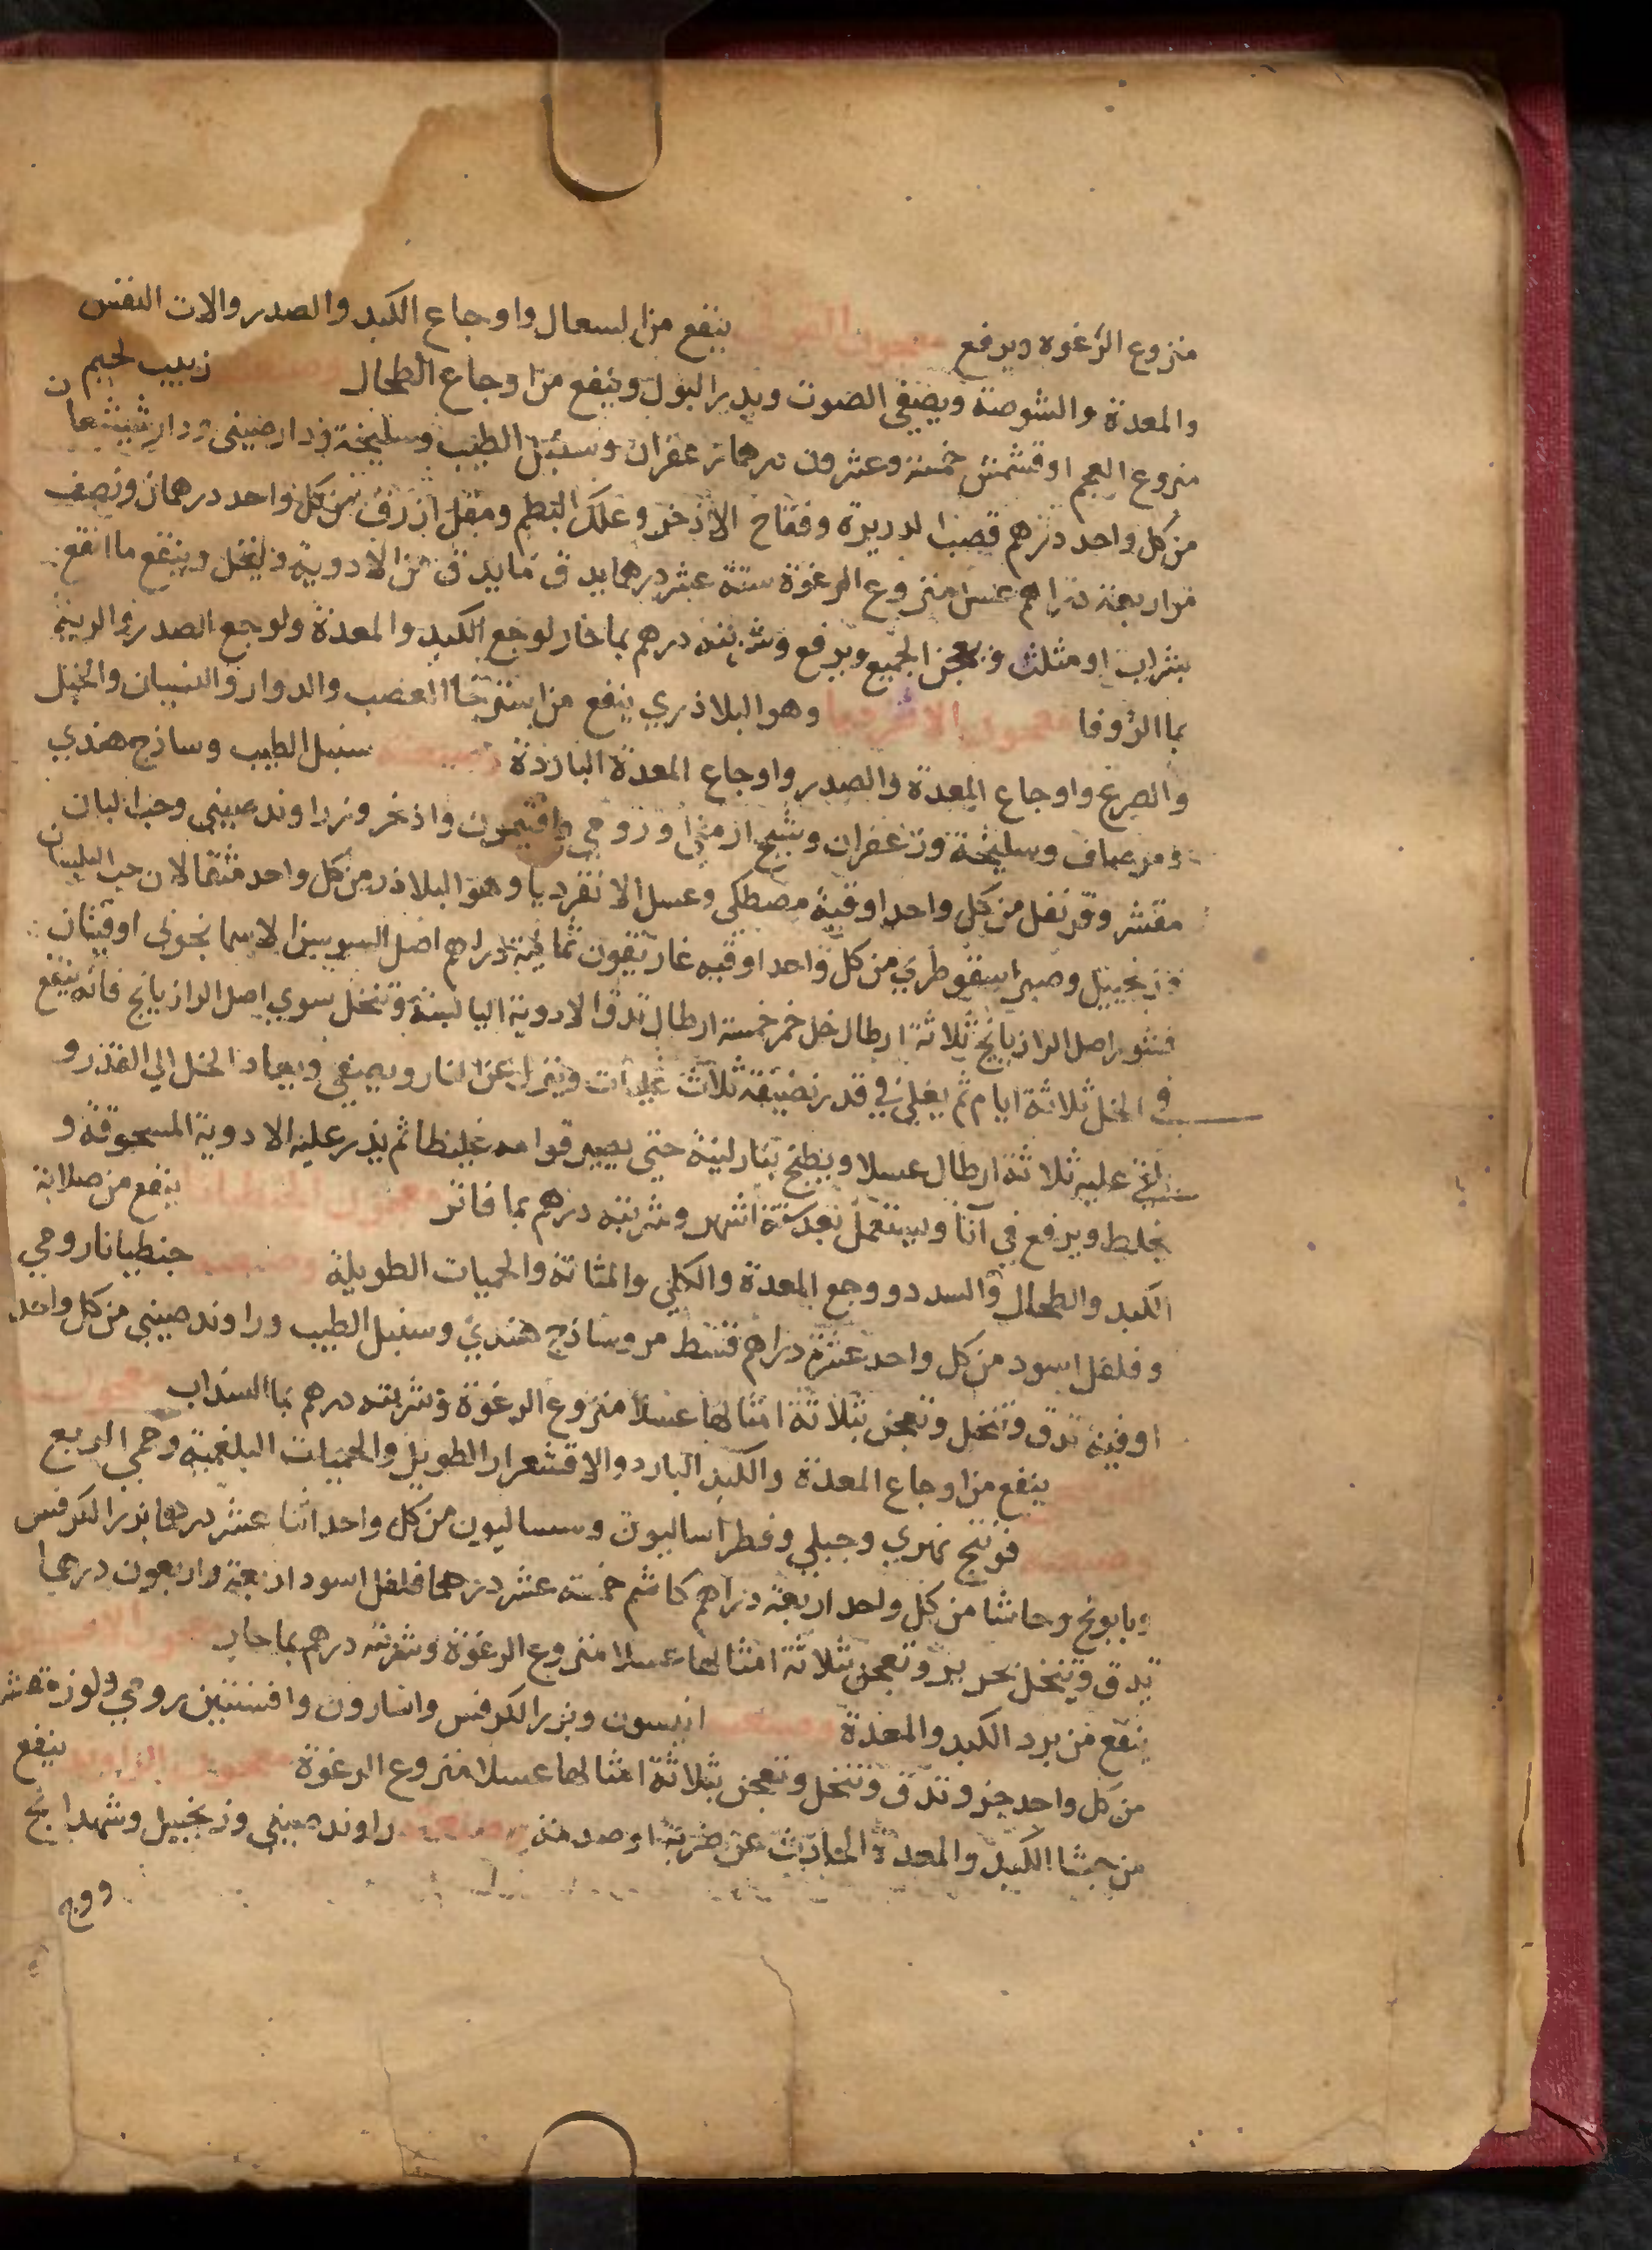 منزوع الرغوه ويرفع معجون ينفع من السعال واوجاع الكبد والصدر والات النفس
والمعدة والشوصة ويصفي الصوت ويدر البول وينفع من اوجاع الطحال وصنعته زبيب لحيم
منزوع العجم او قشمش خمسة وعشرون درهما زعفران وسنبل الطيب وسليخة ودارصيني ودارشيشعا
ن
من كل واحد درهم قصب الدريرة وفقاح الاذخر وعلك البطم ومقل ازرق من كل واحد درهمان ونصف
مر اربعة دراهم عسل منزوع الرغوة ستة عشر درهما يدق ما يدق من الادوية وينخل وينقع ما انقع
بشراب او مثلث ويعجن الجميع ويرفع وشربته درهم بما حار لوجع الكبد والمعدة ولوجع الصدر والرية
بما الزوفا معجون الانقرديا وهو البلاذري ينفع من استرخا العصب والدوار والنسيان والخبل
والصرع واوجاع المعدة والصدر واوجاع المعدة الباردة وصنعته سنبل الطيب وساذج هندي
ومر صاف وسليخة وزعفران وشيح ارمني ورومي وافتيمون واذخر وزراوند صيني وحب البان
مقشر وقرنفل من كل واحد اوقية مصطكى وعسل الانقرديا وهو البلاذر من كل واحد مثقالان حب البلسان
وزنجبيل وصبر اسقوطري من كل واحد اوقيه غاريقون ثمانية دراهم اصل السوسن الاسمانجوني اوقيتان
قشور اصل الرازيانج ثلاثة ارطال خل خمر خمسة ارطال تدق الادوية اليابسة وتنخل سوي اصل الرازيانج فانه ينقع
في الخل ثلاثة ايام ثم يغلي في قدر نظيفة ثلاث غليات وينزل عن النار ويصفي ويعاد الخل الي القدر و
يلقي عليه ثلاثة ارطال عسلا ويطبخ بنار لينة حتي يصير قوامه غليظا ثم يذر عليه الادوية المسحوقة و
يخلط ويرفع في آنا ويستعمل بعد ستة اشهر وشربته درهم بما فاتر معجون الجنطيانا ينفع من صلابة
الكبد والطحال والسدد ووجع المعدة والكلي والمثانة والحميات الطويلة وصنعته جنطيانا رومي
وفلفل اسود من كل واحد عشرة دراهم قسط مر وساذج هندي وسنبل الطيب وراوند صيني من كل واحد
اوقية تدق وتنخل وتعجن بثلاثة امثالها عسلا منزوع الرغوة وشربته درهم بما السذاب معجون
ينفع من اوجاع المعدة والكبد البارد والاقشعرار الطويل والحميات البلغمية وحمي الربع
وصنعته فوتنج نهري وجبلي وفطراساليون وسساليون من كل واحد اثنا عشر درهما بزر الكرفس
وبابونج وحاشا من كل واحد اربعة دراهم كاشم خمسة عشر درهما فلفل اسود اربعة واربعون درهما
تدق وتنخل بحرير وتعجن بثلاثة امثالها عسلا منزوع الرغوة وشربته درهم بما حار
ينفع من برد الكبد والمعدة وصنعته انيسون وبزر الكرفس واسارون وافسنتين رومي ولوز مقشر
من كل واحد جزو تدق وتنخل وتعجن بثلاثة امثالها عسلا منزوع الرغوة معجون الراوند ينفع
من جسا الكبد والمعدة الحادث عن ضربة او صدمة وصنعته راوند صيني وزنجبيل وشهدانج
ووج